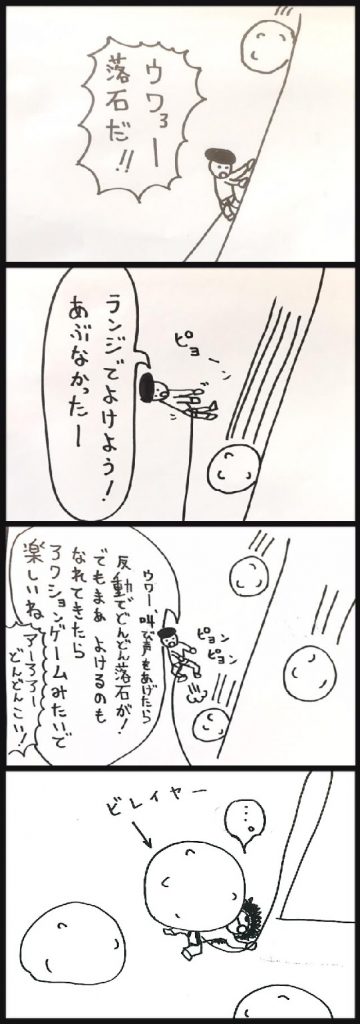 ウワァー
落石だ!!
ランジでよけよう!
あぶなかったー
ピョーン
ウワー叫び声もあげたら
反動でどんどん落石が!
でもまぁよけるのも
なれてきたら
アクションゲームみたいで
楽しいね
アーァァー
どんどんこい!
ピョン
ピョン
ビレイヤー
…。